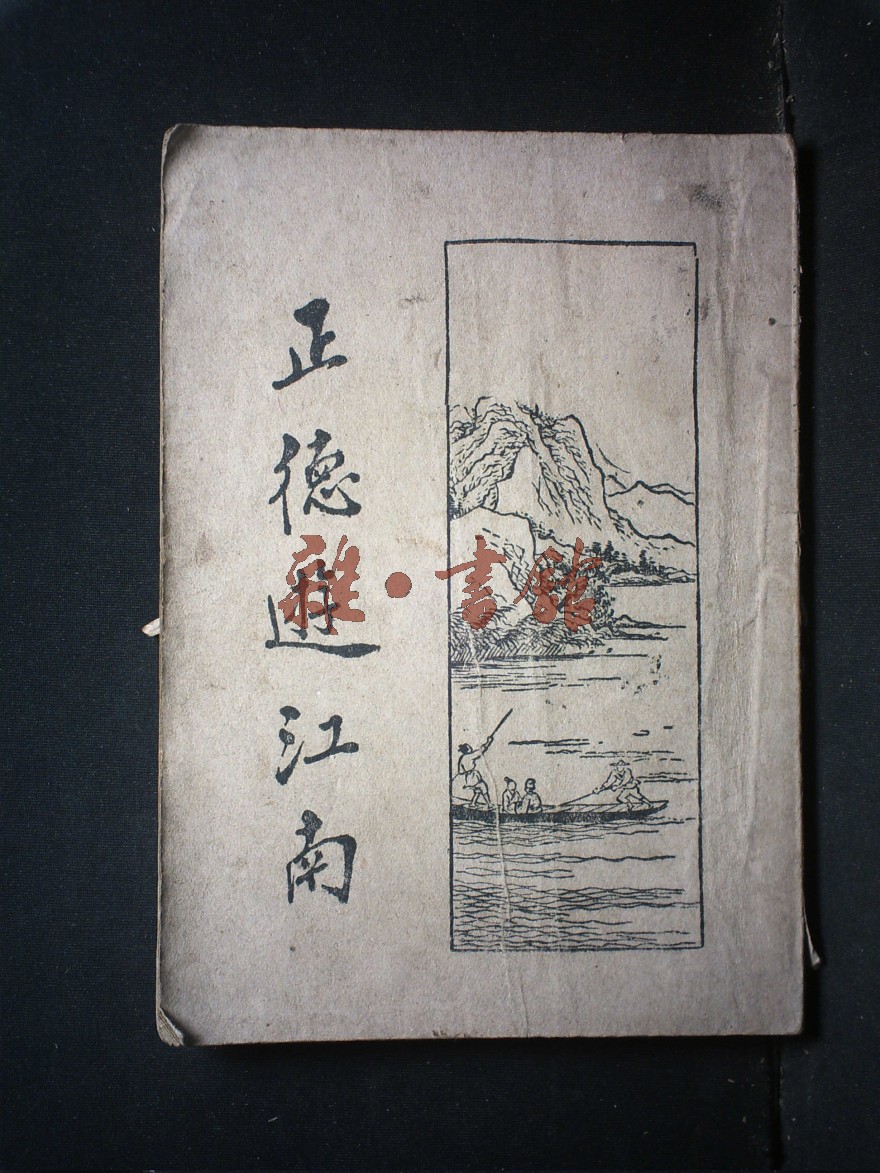 正德遊江南
雜·書館